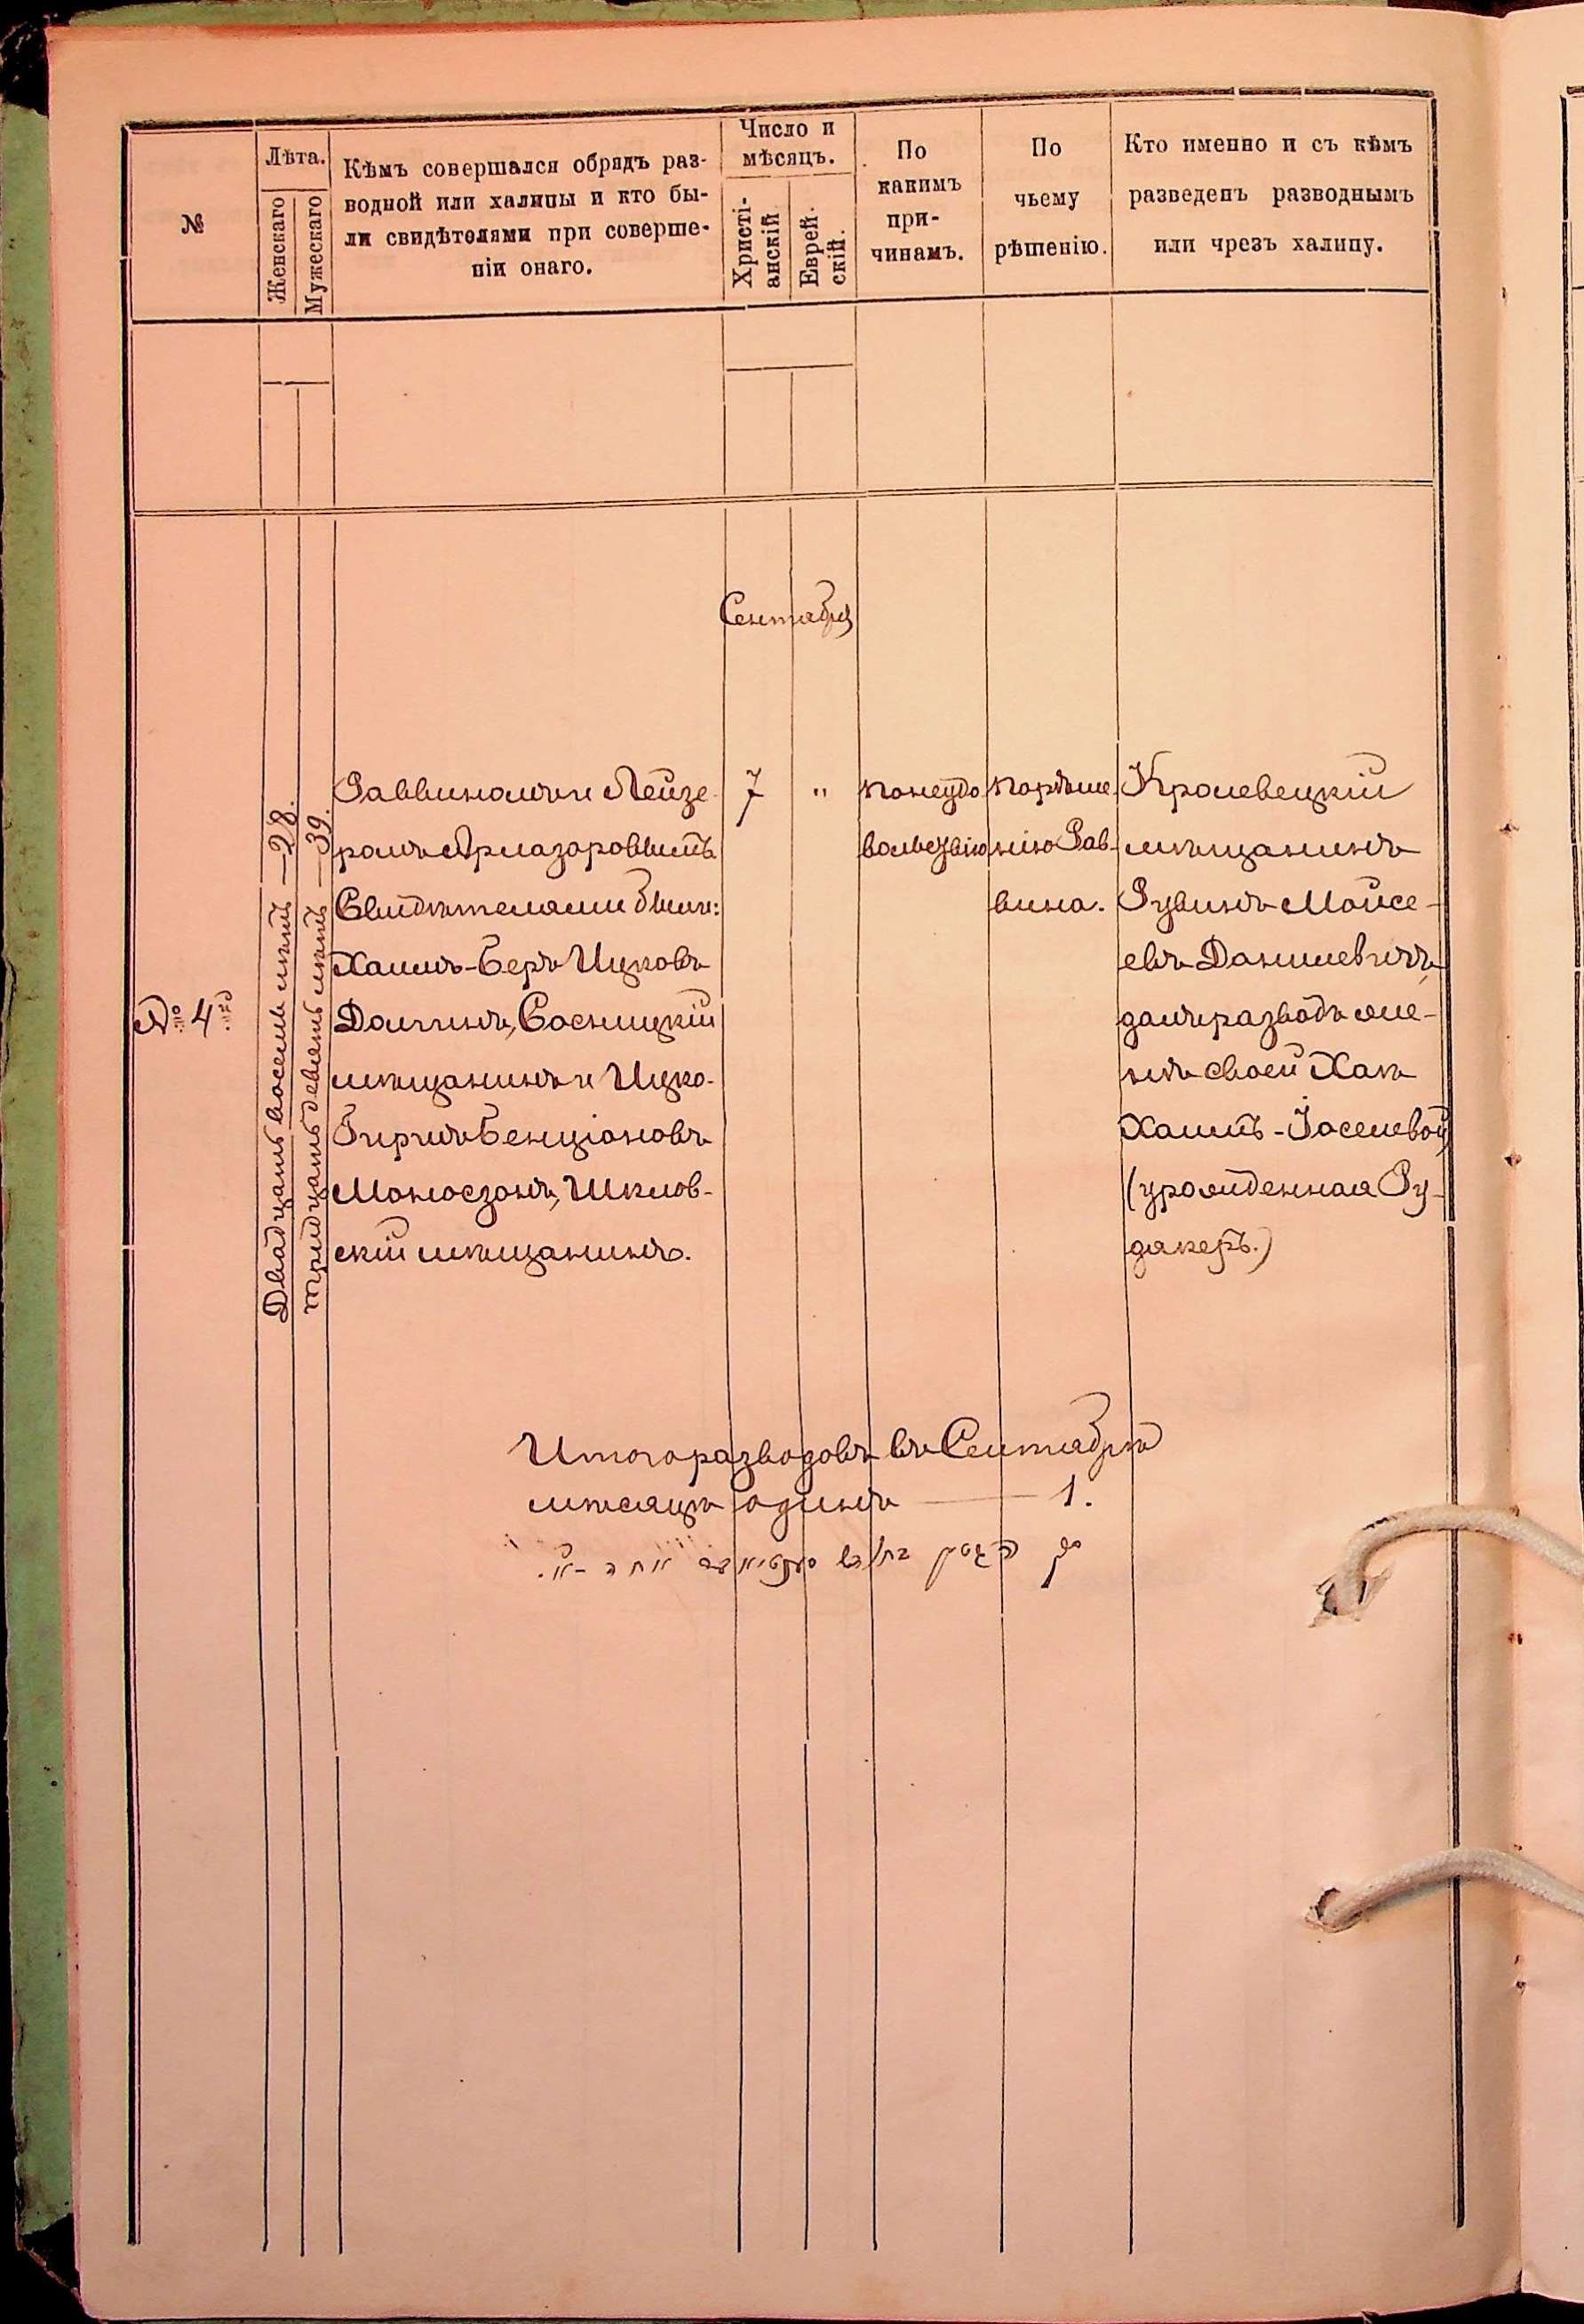 №
Лѣта.
Женскаго
Мужескаго
Кѣмъ совершался обрядъ раз-
водной или халицы и кто бы-
ли свидѣтелями при соверше-
ніи онаго.
Число и
мѣсяцъ.
Христі-
анскій
Еврей-
скій.
По
какимъ
при-
чинамъ.
По
чьему
рѣшенію.
Кто именно и съ кѣмъ
разведенъ разводнымъ
или чрезъ халицу.
Сентября
№ 4й
Двадцать восемь лѣтъ — 28.
тридцать девять лѣтъ — 39.
Раввиномъ и Лейзе-
ромъ
Свидѣтелями были:
Хаимъ-Беръ Ицковъ
Долгинъ, Сосницкій
мѣщанинъ и Ицко-
Гиршъ Бенціоновъ
Моносзонъ, Шклов-
скій мѣщанинъ.
7
"
По неудо
вольствію
По рѣше-
нію Рав-
вина.
Кролевецкій
мѣщанинъ
Рувинъ Мойсе-
евъ Данилевичъ,
далъ разводъ же-
нѣ своей Хаѣ
Хаимъ-Іоселевой
(урожденная Ру-
дякеръ.)
Итого разводовъ въ Сентябрѣ
мѣсяцѣ одинъ — 1.